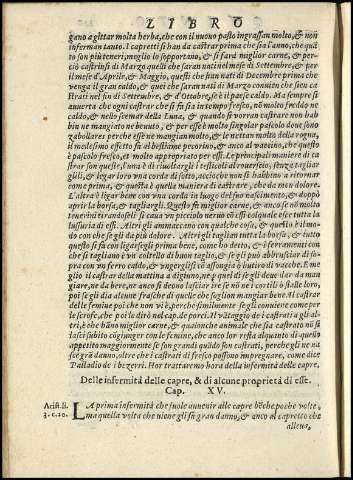 LIBRO
gano a gittar molta herba, che con il nuouo pasto ingrassan molto, & non
inferman tanto. I capretti si han da castrar prima che sia l'anno, che quã
to son più teneri, meglio lo sopportano, & si farà miglior carne, & per
ciò castrinsi di Marzo quelli che saran nati nel mese di Settembre, & per
il mese d'Aprile, & Maggio, questi che siano nati di Decembre prima che
venga il gran caldo, & quei che saran nati di Marzo conuien che sieno ca
strati nel fin di Settembre, & d'Ottobre, se è il paese caldo. Ma sempre si
auuerta che ogni castrar che si fa sia in tempo fresco, nõ molto freddo ne
caldo, & nello scemar della Luna, & quando si vorran castrare non hab
bin ne mangiato ne beuuto, & per esse è molto singolar pascolo doue sono
zaboliares perche esse ne mangian molto, & le nettan molto della rogna,
il medesimo effetto fa al bestiame pecorino, & anco al vaccino, che questo
è pascolo fresco, et molto appropriato per essi. Le principali maniere di ca
strar son queste, l'una è di riuoltargli i testicoli al rouescio, senza tagliar
gli, & legar loro vna corda di sotto, accioche non si habbino a ritornar
come prima, & questa è quella maniera di castrare, che da men dolore.
L'altra è ligar bene con vna corda in luogo del suo nascimento, & doppò
aprir la borsa, & tagliargli. Questo fa miglior carne, & anco se nõ molto
teneri nel tirandoseli si caua vn picciolo neruo cõ essi col quale esce tutta la
lussuria di essi. Altri gli ammaccano con qualche cosa, & questo è il mo-
do con che se gli da più dolore. Altri gli taglian tutta la borsa, & tutto
questo si fa con ligarsegli prima bene, come ho detto, & i ferramenti con
che si tagliano è vn coltello di buon taglio, & se gli può abbrusciar di so-
pra con vn ferro caldo, & vngerglisi cõ assongia ò butiro di vacche. E me
glio il castrar della mattina a digiuno, ne per quel dì se gli deue dar da man
giare, ne da bere, ne anco si deono lasciar ire se nõ ne i cortili ò stalle loro,
poi se gli dia alcune frasche di quelle che soglion mangiar bene. Al castrar
delle femine poi che non vi è, perche similmente se gli conuiene come per
le scrofe, che poi lo dirò nel cap. de porci. Al vãtaggio de i castrati a gli al-
tri, è che hãno miglior carne, & qualonche animale che sia castrato nõ si
lasci subito cõgiunger con le femine, che anco lor resta alquanto di quello
appetito maggiormente se son grandi quãdo son castrati, perche gli ne na
sce grã danno, oltre che i castrati di fresco possono impregnare, come dice
Palladio de i bezerri. Hor trattaremo hora della infermità delle capre.
Delle infermità delle capre, & di alcune proprietà di esse.
Cap. XV.
Arist. li.
3. c. 10.
LA prima infermità che suole auuenir alle capre bẽche poche volte,
ma quella volta che viene gli fa gran danno, & anco al capretto che
alleua,